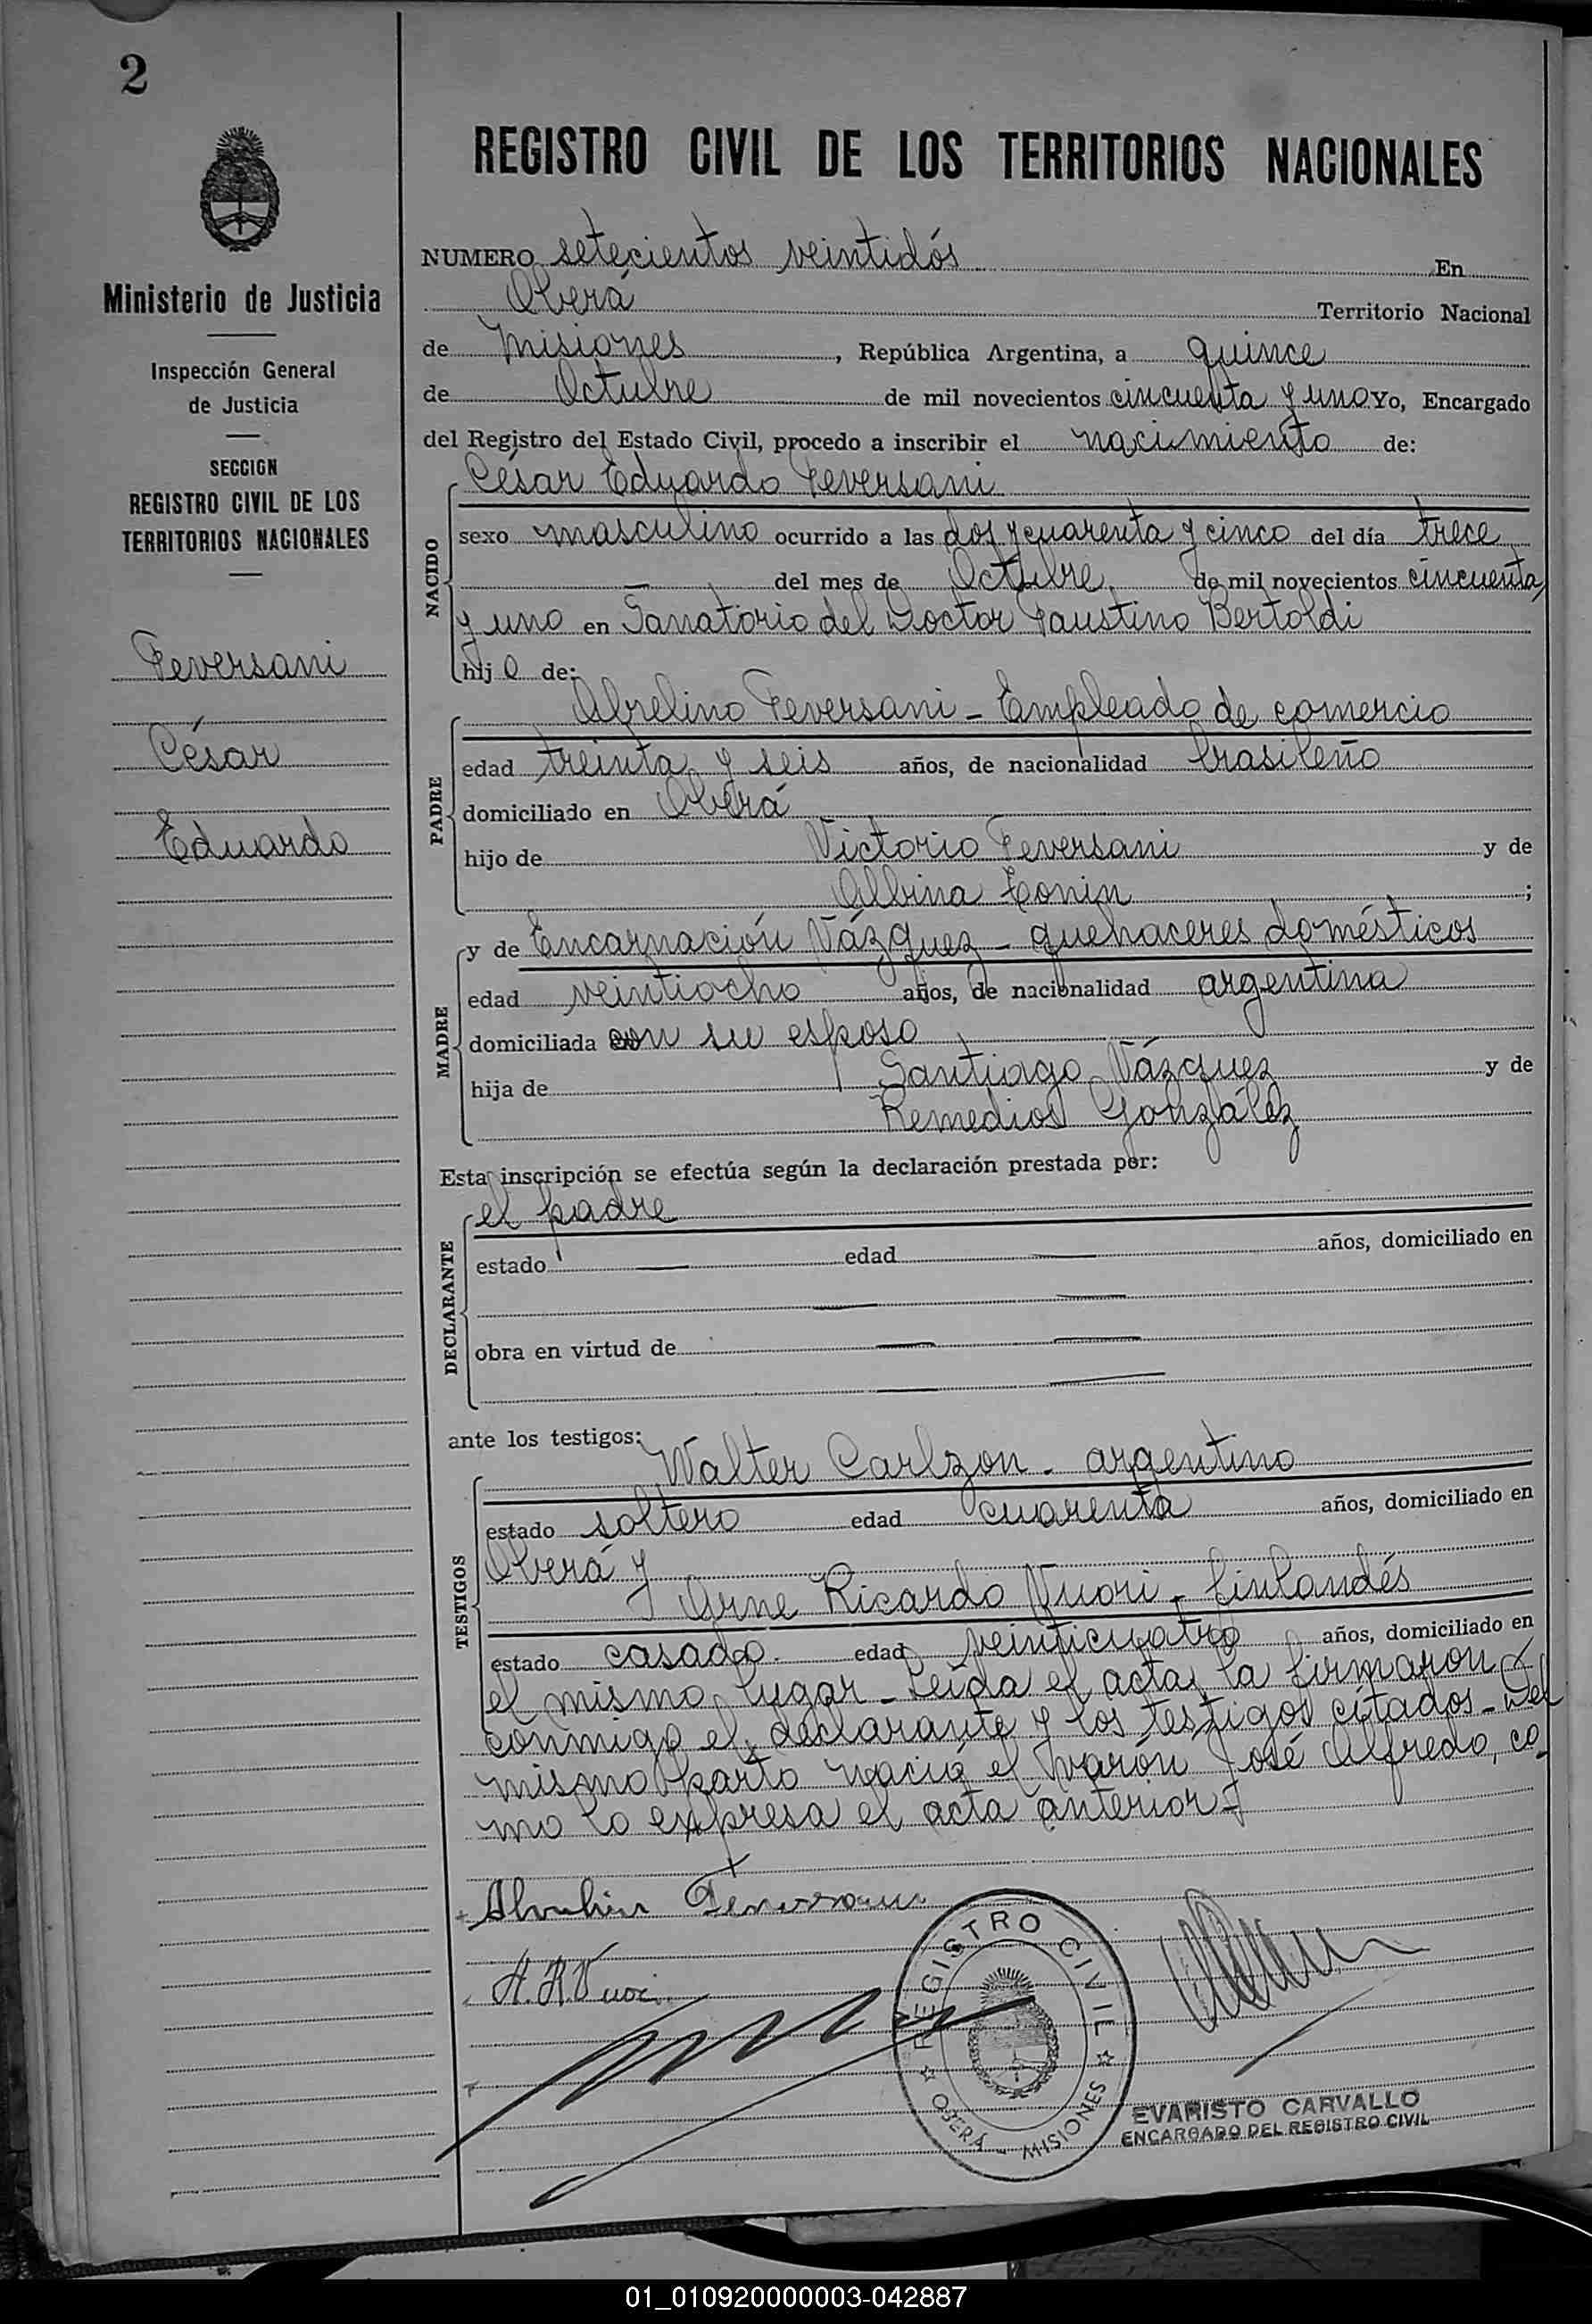 2
Ministerio de Justicia
Inspección General
de Justicia
SECCION
REGISTRO CIVIL DE LOS
TERRITORIOS NACIONALES
Feversani
César
Eduardo
REGISTRO CIVIL DE LOS TERRITORIOS NACIONALES
NUMERO setecientos veintidós En
Oberá Territorio Nacional
de Misiones, República Argentina, a quince
de Octubre de mil novecientos cincuenta y uno Yo, Encargado
del Registro del Estado Civil, procedo a inscribir el nacimiento de:
César Eduardo Feversani
NACIDO
sexo masculino ocurrido a las dos y cuarenta y cinco del día trece
del mes de Octubre de mil novecientos cincuenta
y uno en Sanatorio del Doctor Faustino Bertoldi
hij o de:
PADRE
Abrelino Feversani - Empleado de comercio
edad treinta y seis años, de nacionalidad brasileño
domiciliado en Oberá
hijo de Victorio Feversani y de
Albina Tonin ;
MADRE
y de Encarnación Vázquez - quehaceres domésticos
edad veintiocho años, de nacionalidad argentina
domiciliada con su esposo
hija de Santiago Vázquez y de
Remedios González
Esta inscripción se efectúa según la declaración prestada por:
DECLARANTE
el padre
estado — edad — años, domiciliado en
— —
obra en virtud de — —
— —
ante los testigos:
TESTIGOS
Walter Carlzon - argentino
estado soltero edad cuarenta años, domiciliado en
Oberá y
Arne Ricardo Vuori - finlandés
estado casado edad veinticuatro años, domiciliado en
el mismo lugar - Leída el acta, la firmaron
conmigo el declarante y los testigos citados - Del
mismo parto nació el varón José Alfredo, co-
mo lo expresa el acta anterior -
Feversani
A. R. Vuori
REGISTRO CIVIL
OBERÁ - MISIONES
EVARISTO CARVALLO
ENCARGADO DEL REGISTRO CIVIL
01_010920000003-042887